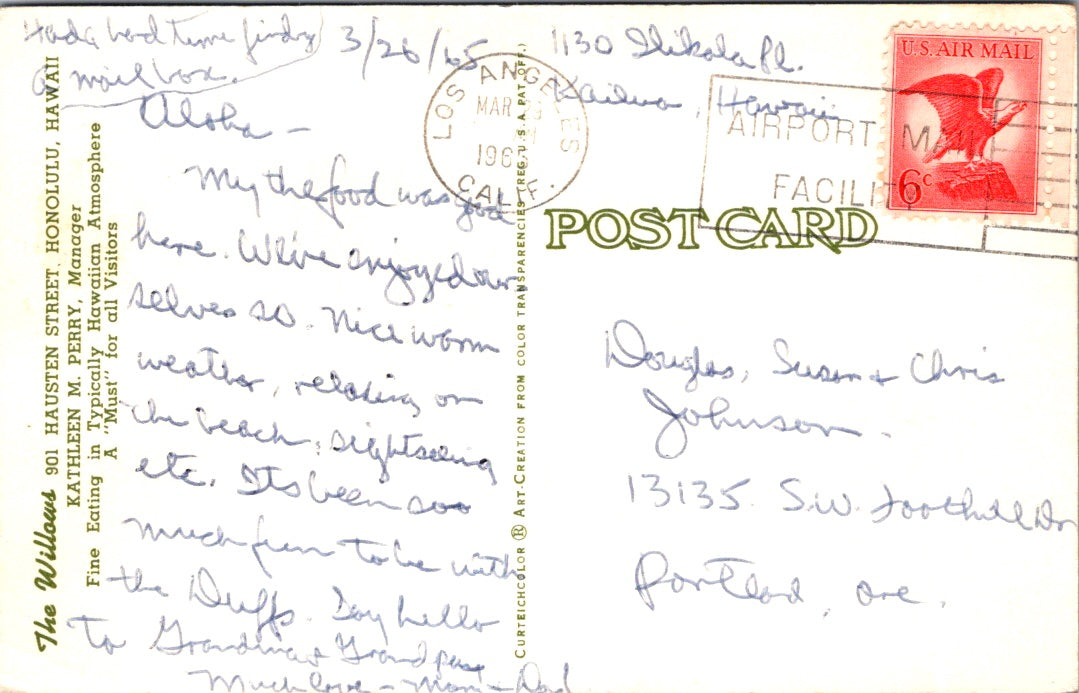 Had a hard time finding
a mail box.
3/26/65
1130 Ilikala Pl.
Kailua, Hawaii
Aloha –
My the food was good
here. We've enjoyed our
selves so. Nice warm
weather, relaxing on
the beach, sightseeing
etc. Its been soo
much fun to be with
the Duffs. Say hello
to Grandma & Grandpa
Much love – Mom & Dad
The Willows 901 HAUSTEN STREET, HONOLULU, HAWAII
KATHLEEN M. PERRY, Manager
Fine Eating in Typically Hawaiian Atmosphere
A "Must" for all Visitors
CURTEICHCOLOR ® ART-CREATION FROM COLOR TRANSPARENCIES (REG. U.S.A. PAT. OFF.)
LOS ANGELES
MAR
1965
CALIF.
AIRPORT MAIL
FACILITY
U.S. AIR MAIL
6c
POST CARD
Douglas, Susan & Chris
Johnson.
13135 S.W. Foothill Dr
Portland, Ore.